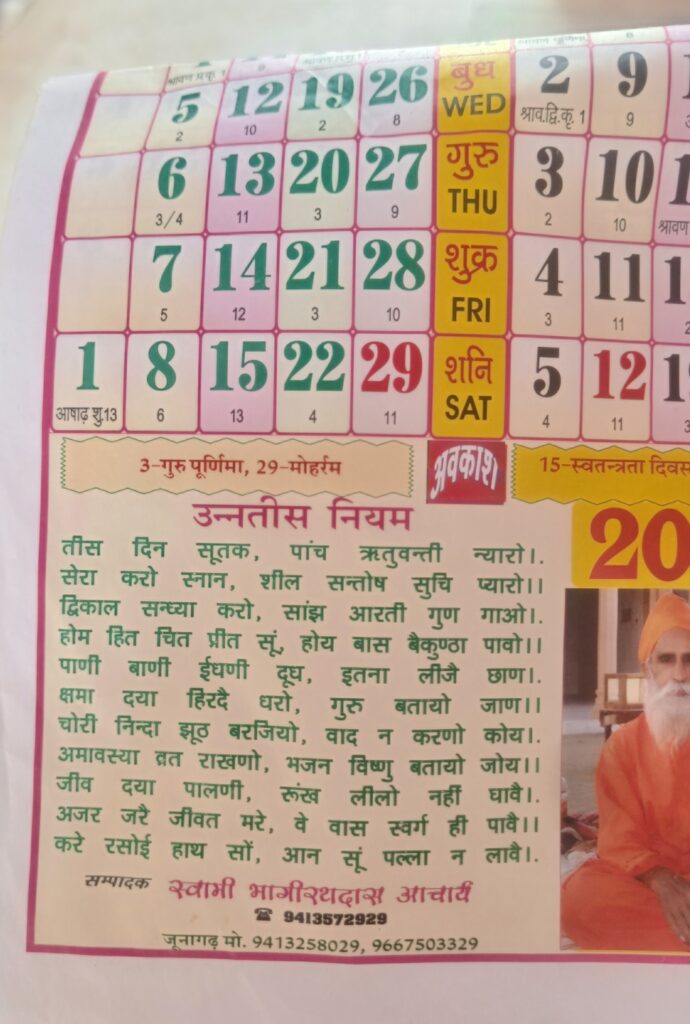 श्रावण प्र.कृ. 1
5 12 19 26 बुध 2 9
2 10 2 8 WED श्राव.द्वि.कृ. 1 9
6 13 20 27 गुरु 3 10
3/4 11 3 9 THU 2 10 श्रावण
7 14 21 28 शुक्र 4 11
5 12 3 10 FRI 3 11
1 8 15 22 29 शनि 5 12
आषाढ़ शु.13 6 13 4 11 SAT 4 11
3-गुरु पूर्णिमा, 29-मोहर्रम अवकाश 15-स्वतन्त्रता दिवस
उन्नतीस नियम
20
तीस दिन सूतक, पांच ऋतुवन्ती न्यारो।.
सेरा करो स्नान, शील सन्तोष सुचि प्यारो।।
द्विकाल सन्ध्या करो, सांझ आरती गुण गाओ।.
होम हित चित प्रीत सूं, होय बास बैकुण्ठा पावो।।
पाणी बाणी ईधणी दूध, इतना लीजै छाण।.
क्षमा दया हिरदै धरो, गुरु बतायो जाण।।
चोरी निन्दा झूठ बरजियो, वाद न करणो कोय।.
अमावस्या व्रत राखणो, भजन विष्णु बतायो जोय।।
जीव दया पालणी, रूंख लीलो नहीं घावै।.
अजर जरै जीवत मरे, वे वास स्वर्ग ही पावै।।
करे रसोई हाथ सों, आन सूं पल्ला न लावै।.
सम्पादक स्वामी भागीरथदास आचार्य
☎ 9413572929
जूनागढ़ मो. 9413258029, 9667503329